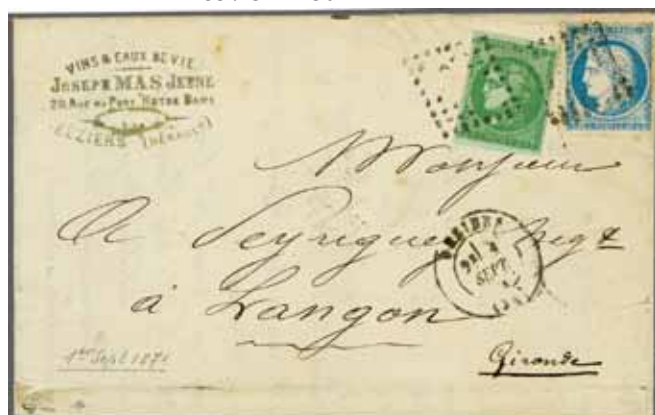 VINS & EAUX DE VIE
JOSEPH MAS JEUNE
20, RUE DU PORT NOTRE DAME
BÉZIERS (HÉRAULT)
Monsieur
A Seyrigue Negt
à Langon
Gironde
BEZIERS
SEPT.
1er Sept 1871